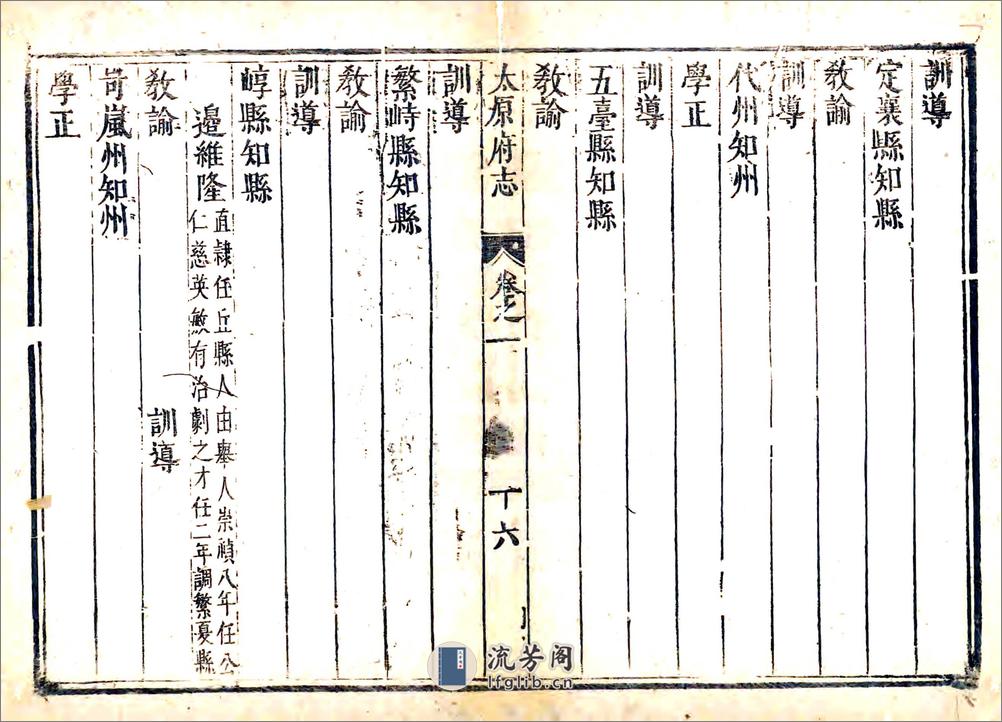 訓導
定襄縣知縣
教諭
訓導
代州知州
學正
訓導
五臺縣知縣
教諭
太原府志
卷之一
十六
訓導
繁峙縣知縣
教諭
訓導
崞縣知縣
邉維隆
直隷任丘縣人由舉人崇禎八年任公
仁慈英敏有治劇之才任二年調繁夏縣
教諭
訓導
岢嵐州知州
學正
流芳阁
lfglib.cn